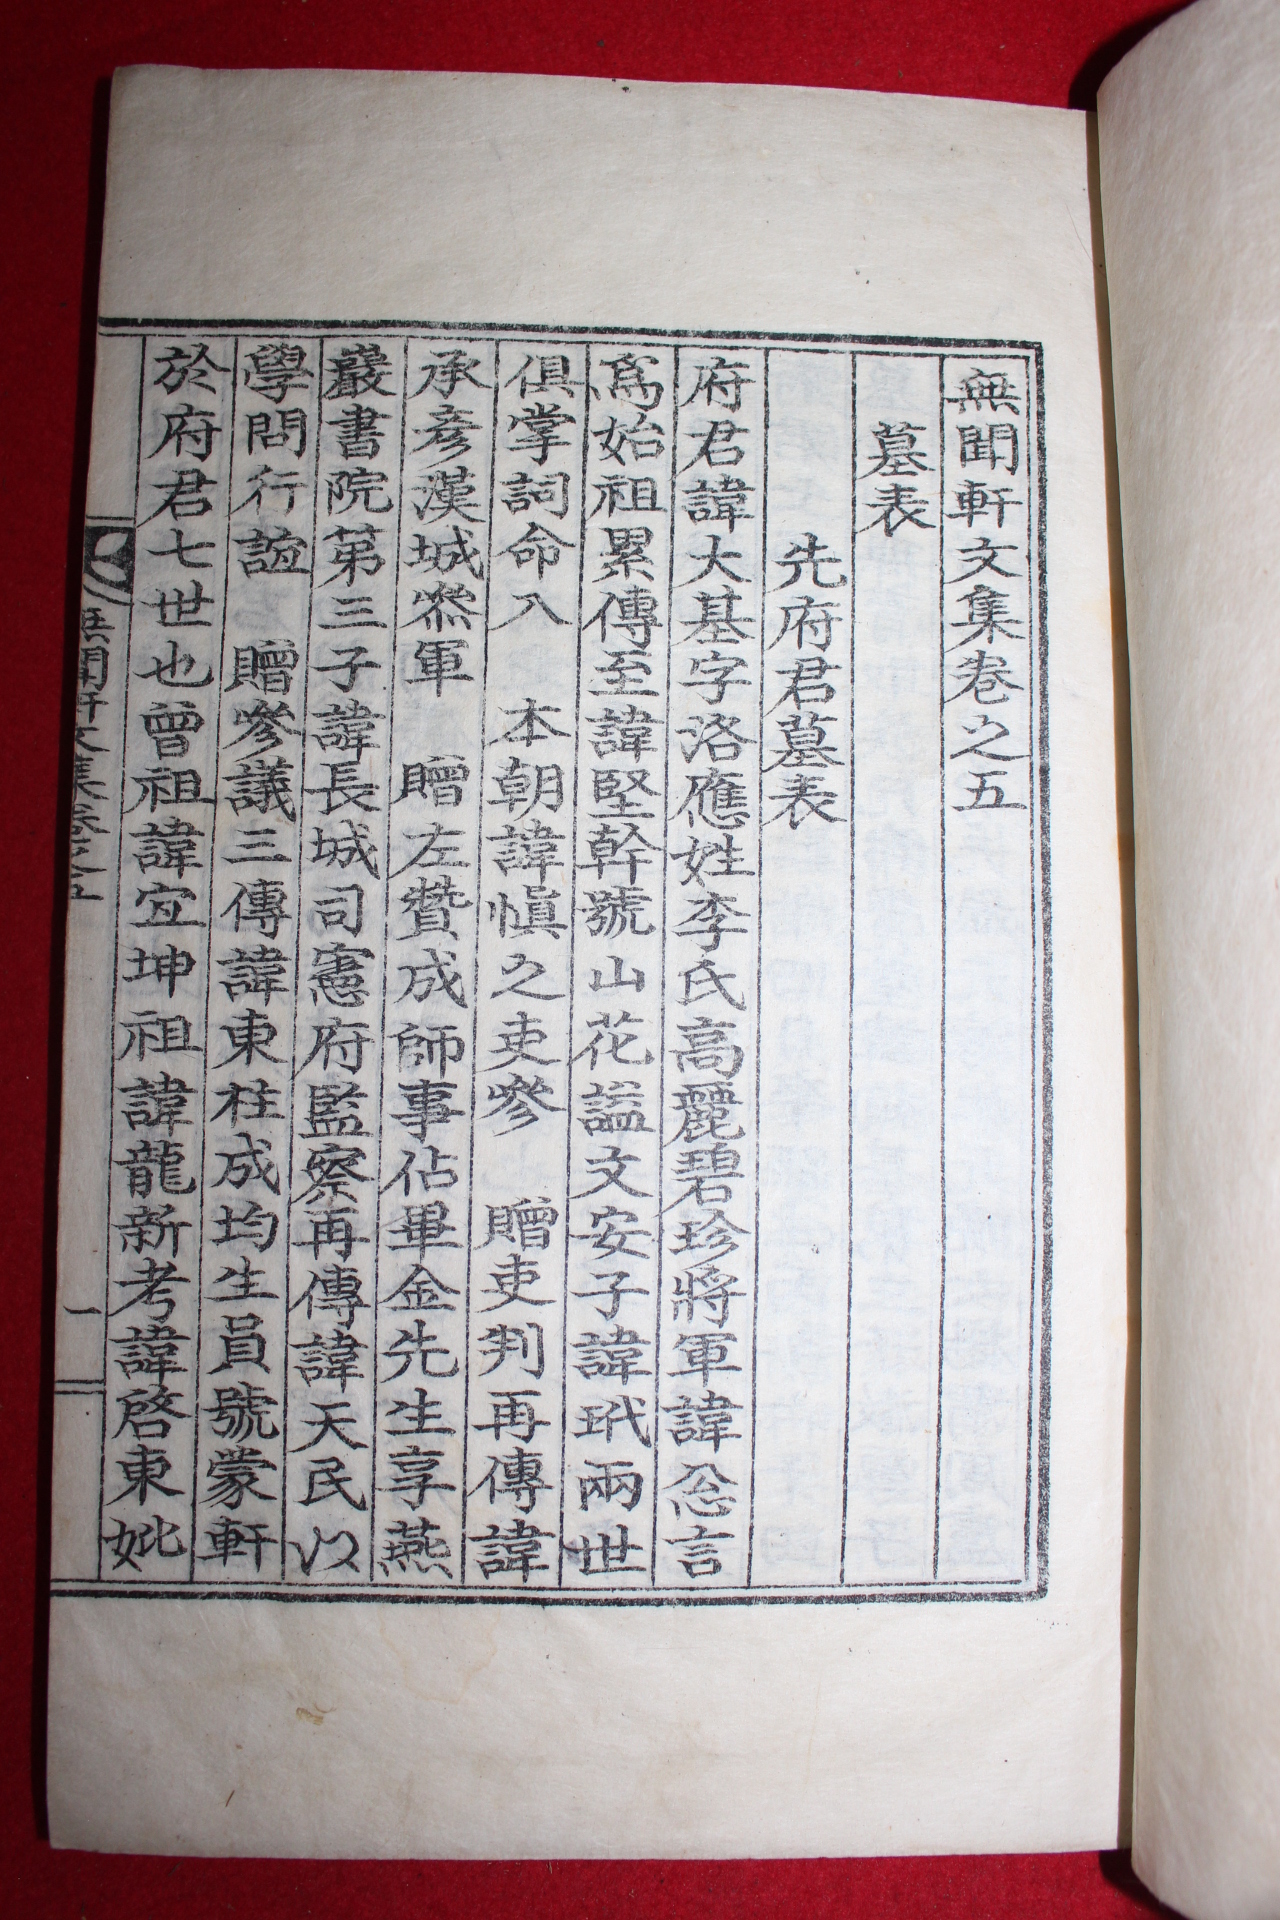 無聞軒文集卷之五
墓表
先府君墓表
府君諱大基字洛應姓李氏高麗碧珍將軍諱忩言
爲始祖累傳至諱堅幹號山花諡文安子諱玳兩世
俱掌詞命入　本朝諱愼之吏參　贈吏判再傳諱
承彦漢城叅軍　贈左贊成師事佔畢金先生享燕
巖書院第三子諱長城司憲府監察再傳諱天民以
學問行誼　贈參議三傳諱東柱成均生員號蒙軒
於府君七世也曾祖諱宜坤祖諱龍新考諱啓東妣
無聞軒文集卷之五
一